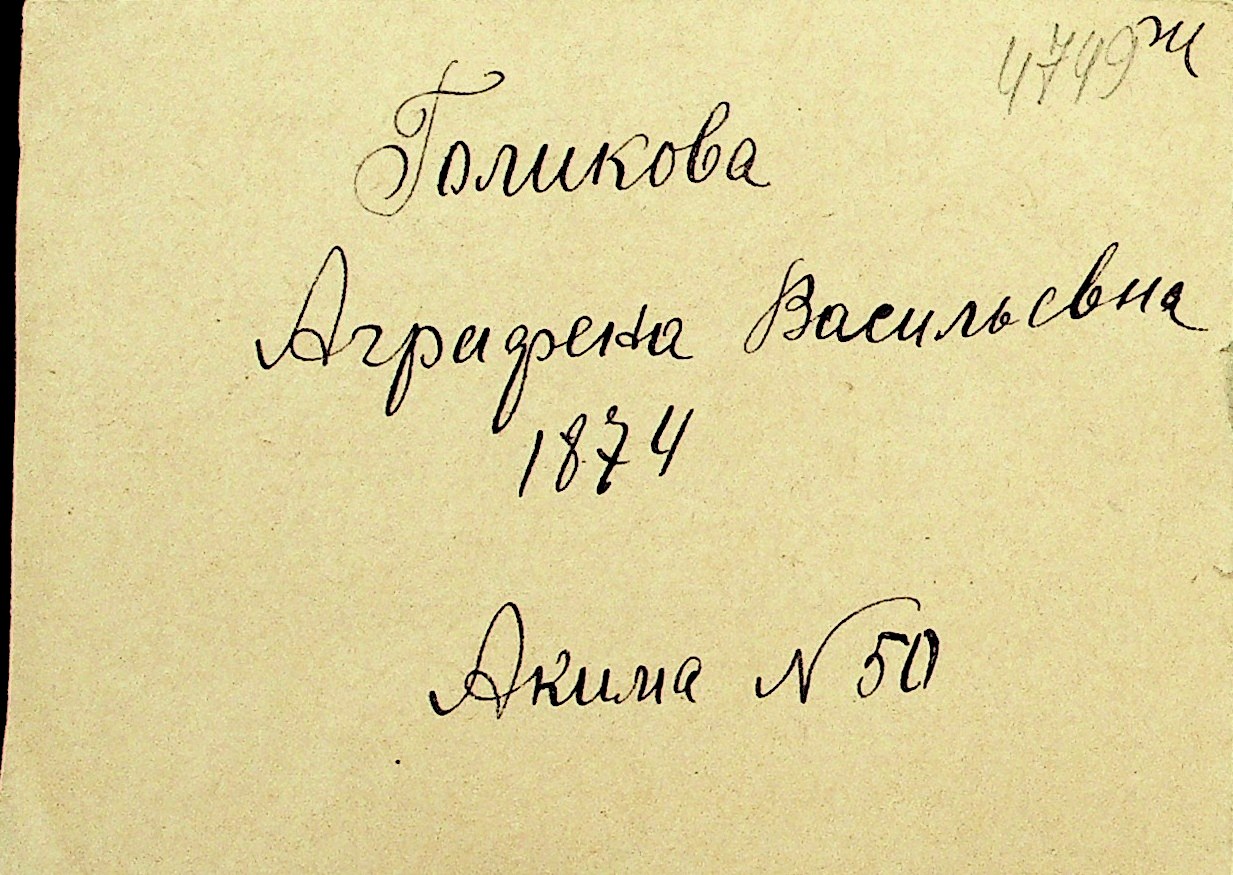 4749 ж
Голикова
Аграфена Васильевна
1874
Акима N 50